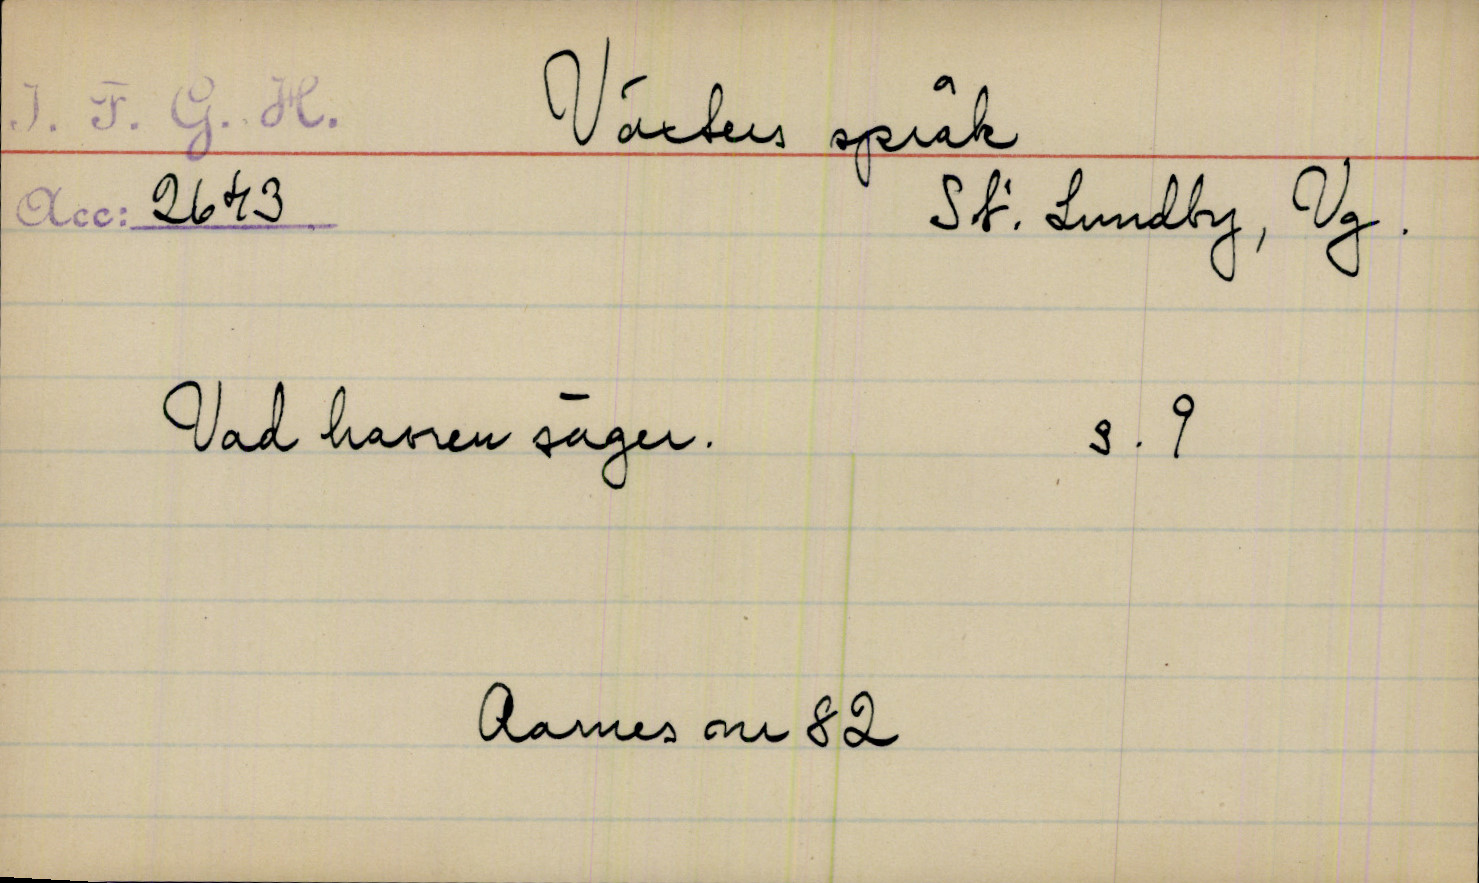 I. F. G. H. Växters språk
Acc: 2643 St. Lundby, Vg.
Vad havren säger. s. 9
Aarnes nr 82